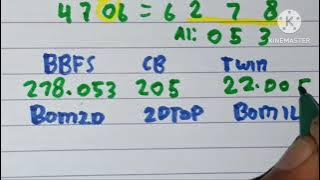 4706 = 6 2 7 8
Ai: 0 5 3
KINEMASTER
BBFS CB TWIN
278.053 205 22.005
BOM2D 2DTOP BOM1L